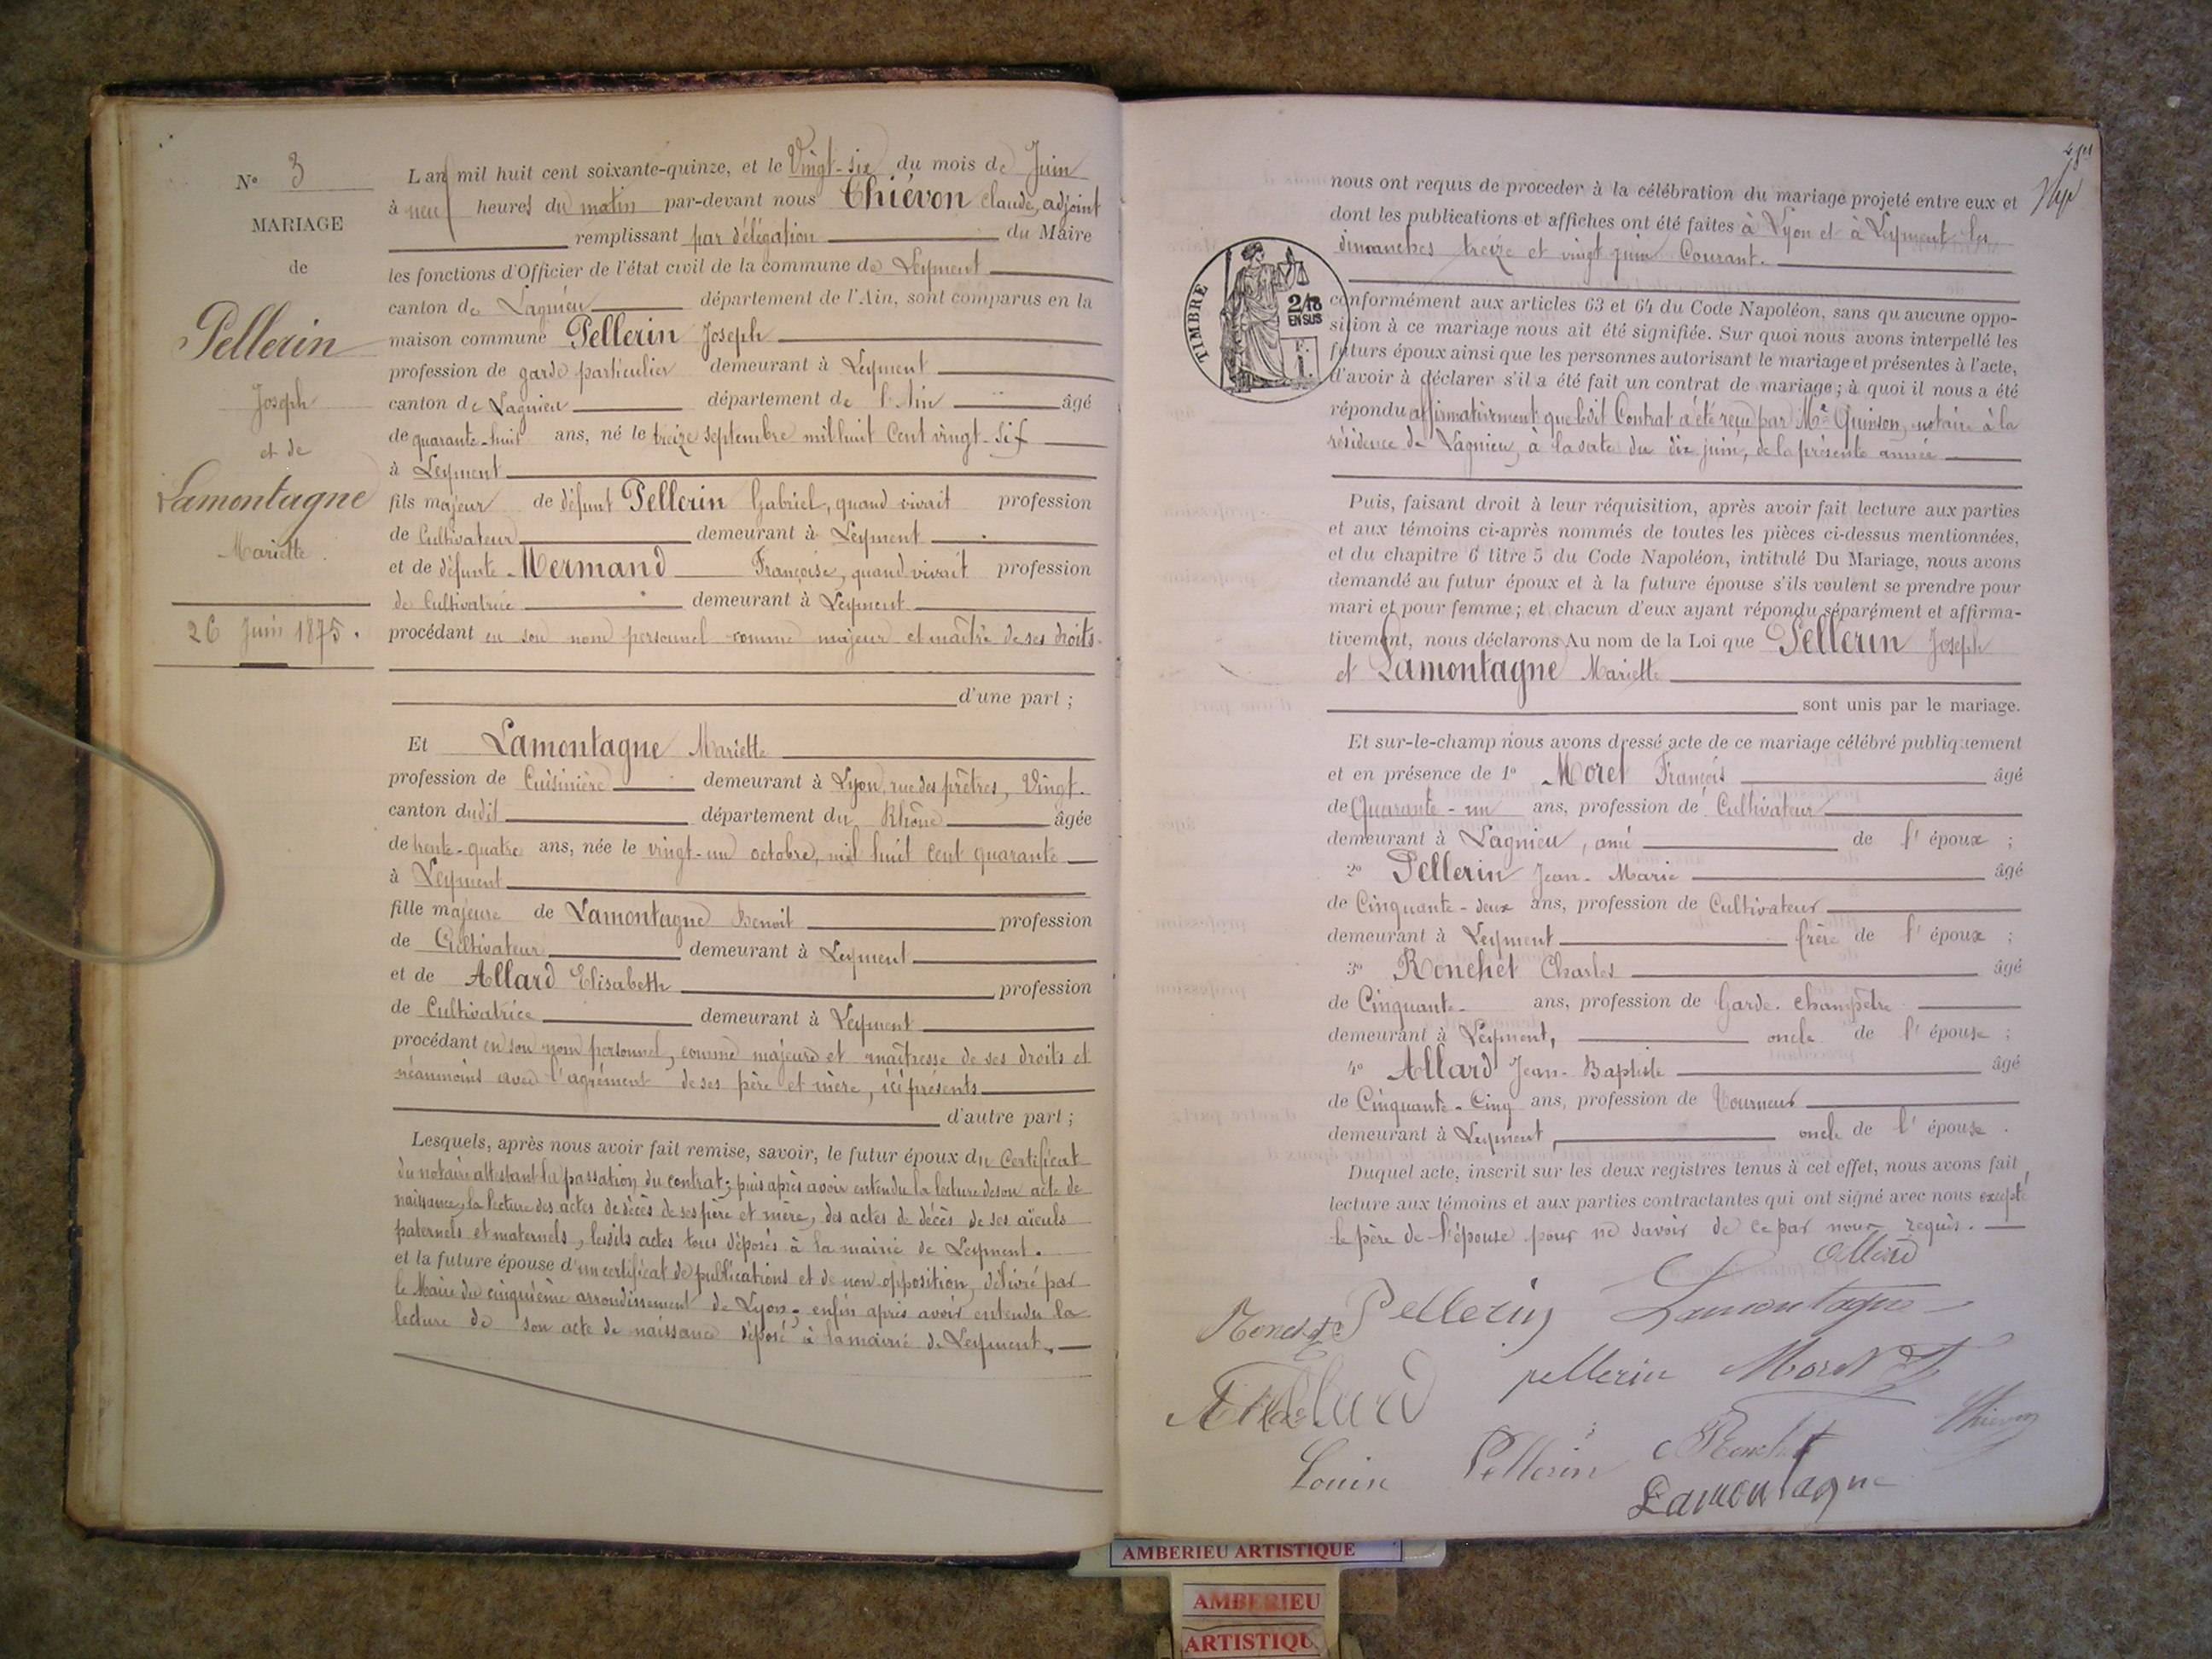 N° 3
MARIAGE
de
Pellerin
Joseph
et de
Lamontagne
Mariette.
26 Juin 1875.
L'an mil huit cent soixante-quinze, et le Vingt-six du mois de Juin
à neuf heures du matin par-devant nous Thiévon claude, adjoint
remplissant par délégation du Maire
les fonctions d'Officier de l'état civil de la commune de Leyment
canton de Lagnieu département de l'Ain, sont comparus en la
maison commune Pellerin Joseph
profession de garde particulier demeurant à Leyment
canton de Lagnieu département de l'Ain âgé
de quarante-huit ans, né le treize septembre mil huit cent vingt-six
à Leyment
fils majeur de défunt Pellerin Gabriel, quand vivait profession
de Cultivateur demeurant à Leyment
et de défunte Mermand Françoise, quand vivait profession
de Cultivatrice demeurant à Leyment
procédant en son nom personnel comme majeur et maître de ses droits.
d'une part ;
Et Lamontagne Mariette
profession de Cuisinière demeurant à Lyon, rue des prêtres, Vingt.
canton dudit département du Rhône âgée
de trente-quatre ans, née le vingt-un octobre, mil huit cent quarante
à Leyment
fille majeure de Lamontagne Benoit profession
de Cultivateur demeurant à Leyment
et de Allard Elisabeth profession
de Cultivatrice demeurant à Leyment
procédant en son nom personnel, comme majeure et maîtresse de ses droits et
néanmoins avec l'agrément de ses père et mère, ici présents
d'autre part ;
Lesquels, après nous avoir fait remise, savoir, le futur époux du Certificat
du notaire attestant la passation du contrat; puis après avoir entendu la lecture de son acte de
naissance, la lecture des actes de décès de ses père et mère, des actes de décès de ses aïeuls
paternels et maternels, lesdits actes tous déposés à la mairie de Leyment.
et la future épouse d'un certificat de publications et de non-opposition, délivré par
le Maire du cinquième arrondissement de Lyon; enfin après avoir entendu la
lecture de son acte de naissance déposé à la mairie de Leyment.
nous ont requis de proceder à la célébration du mariage projeté entre eux et
dont les publications et affiches ont été faites à Lyon et à Leyment les
dimanches treize et vingt juin Courant.
TIMBRE
2/10
EN SUS
F.
1.
conformément aux articles 63 et 64 du Code Napoléon, sans qu'aucune oppo-
sition à ce mariage nous ait été signifiée. Sur quoi nous avons interpellé les
futurs époux ainsi que les personnes autorisant le mariage et présentes à l'acte,
d'avoir à déclarer s'il a été fait un contrat de mariage ; à quoi il nous a été
répondu affirmativement que ledit Contrat a été reçu par Me Quinson, notaire à la
résidence de Lagnieu, à la date du dix juin, de la présente année
Puis, faisant droit à leur réquisition, après avoir fait lecture aux parties
et aux témoins ci-après nommés de toutes les pièces ci-dessus mentionnées,
et du chapitre 6 titre 5 du Code Napoléon, intitulé Du Mariage, nous avons
demandé au futur époux et à la future épouse s'ils veulent se prendre pour
mari et pour femme ; et chacun d'eux ayant répondu séparément et affirma-
tivement, nous déclarons Au nom de la Loi que Pellerin Joseph
et Lamontagne Mariette
sont unis par le mariage.
Et sur-le-champ nous avons dressé acte de ce mariage célébré publiquement
et en présence de 1° Morel François âgé
de Quarante-un ans, profession de Cultivateur
demeurant à Lagnieu, ami de l'époux ;
2° Pellerin Jean-Marie âgé
de Cinquante-deux ans, profession de Cultivateur
demeurant à Leyment frère de l'époux ;
3° Ronchet Charles âgé
de Cinquante ans, profession de Garde-champêtre
demeurant à Leyment, oncle de l'épouse ;
4° Allard Jean-Baptiste âgé
de Cinquante-Cinq ans, profession de Tourneur
demeurant à Leyment, oncle de l'épouse.
Duquel acte, inscrit sur les deux registres tenus à cet effet, nous avons fait
lecture aux témoins et aux parties contractantes qui ont signé avec nous excepté
le père de l'épouse pour ne savoir de ce par nous requis.
Allard
Ronchet Pellerin Lamontagne
Allard pellerin Morel
Thievon
Louise Pellerin Ronchet
Lamontagne
AMBERIEU ARTISTIQUE
AMBERIEU
ARTISTIQU